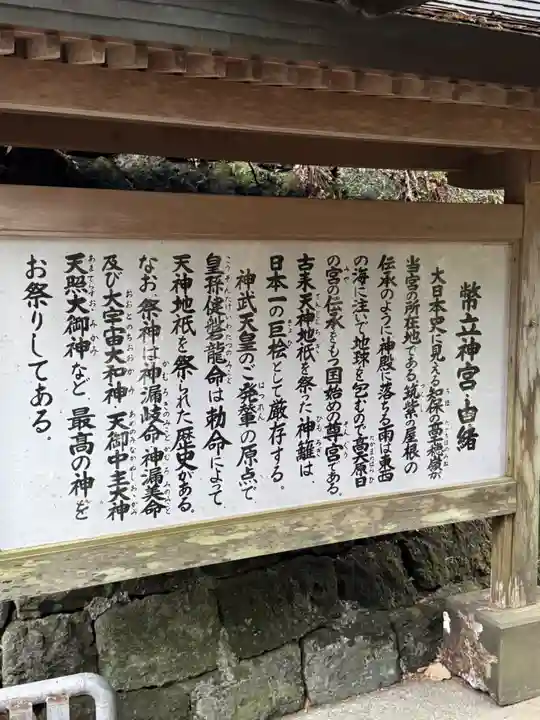 幣立神宮・由緒
大日本史に見える知保の高千穂嶺が
当宮の所在地である。筑紫の屋根の
伝承のように神殿に落ちる雨は東西
の海に注いで地球を包むので高天原・日
の宮の伝承をもつ国始めの尊宮である。
古来天神地祇を祭った神籬は、
日本一の巨桧として厳存する。
神武天皇のご発輦の原点で、
皇孫健磐龍命は勅命によって
天神地祇を祭られた歴史がある。
なお、祭神は神漏岐命・神漏美命
及び大宇宙大和神・天御中主大神・
天照大御神など、最高の神を
お祭りしてある。